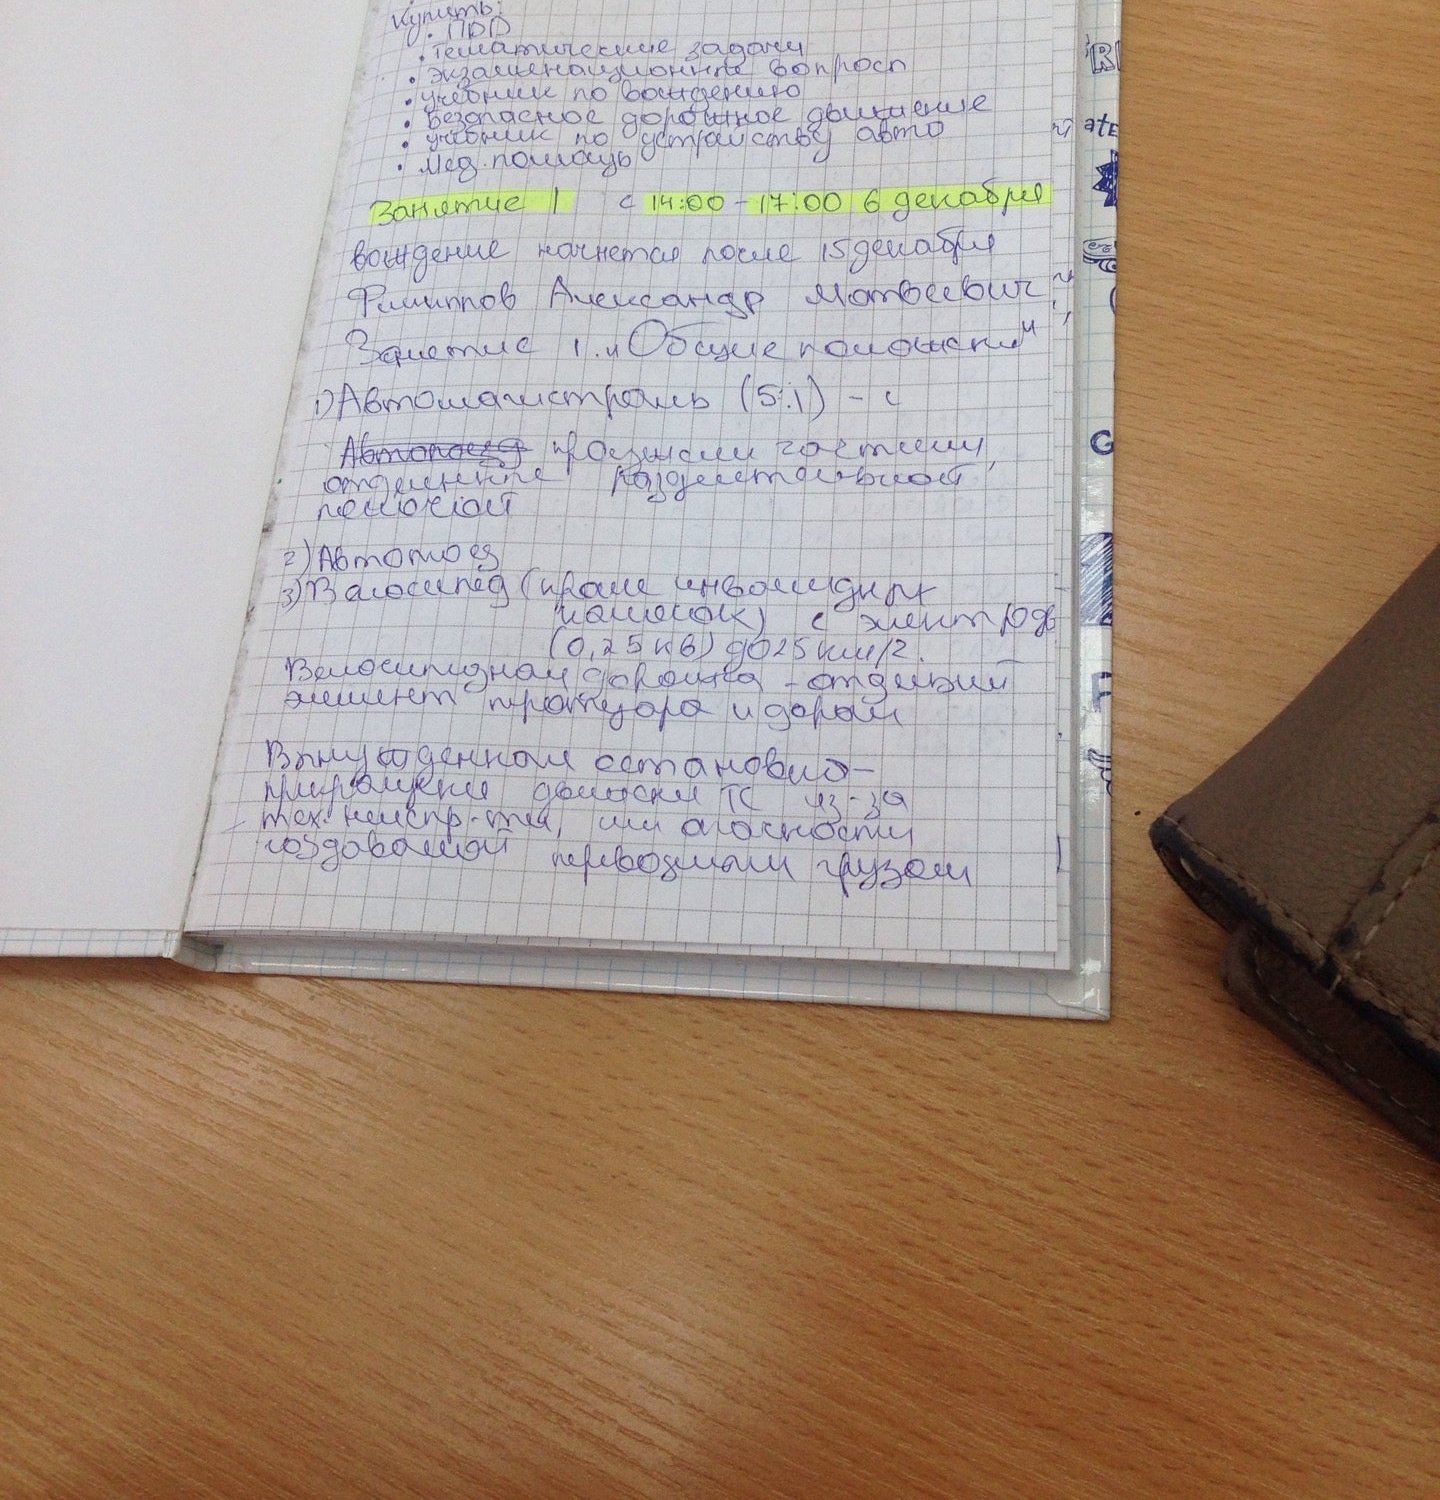 Купить:
• ПДД
• тематические задачи
• экзаменационные вопросы
• учебник по вождению
• безопасное дорожное движение
• учебник по устройству авто
• мед. помощь
Занятие 1 с 14:00 - 17:00 6 декабря
вождение начнется после 15 декабря
Филиппов Александр Матвеевич
Занятие 1. "Общие положения"
1) Автомагистраль (5.1) - с
Автопоезд проезжими частями,
отделенные разделительной
полосой
2) Автопоезд
3) Велосипед (кроме инвалидных
колясок) с электродв
(0,25 кв) до 25 км/г.
Велосипедная дорожка - отдельный
элемент тротуара и дороги
Вынужденная остановка -
прекращение движения ТС из-за
тех. неиспр-тей, или опасности
создаваемой перевозимым грузом
ate